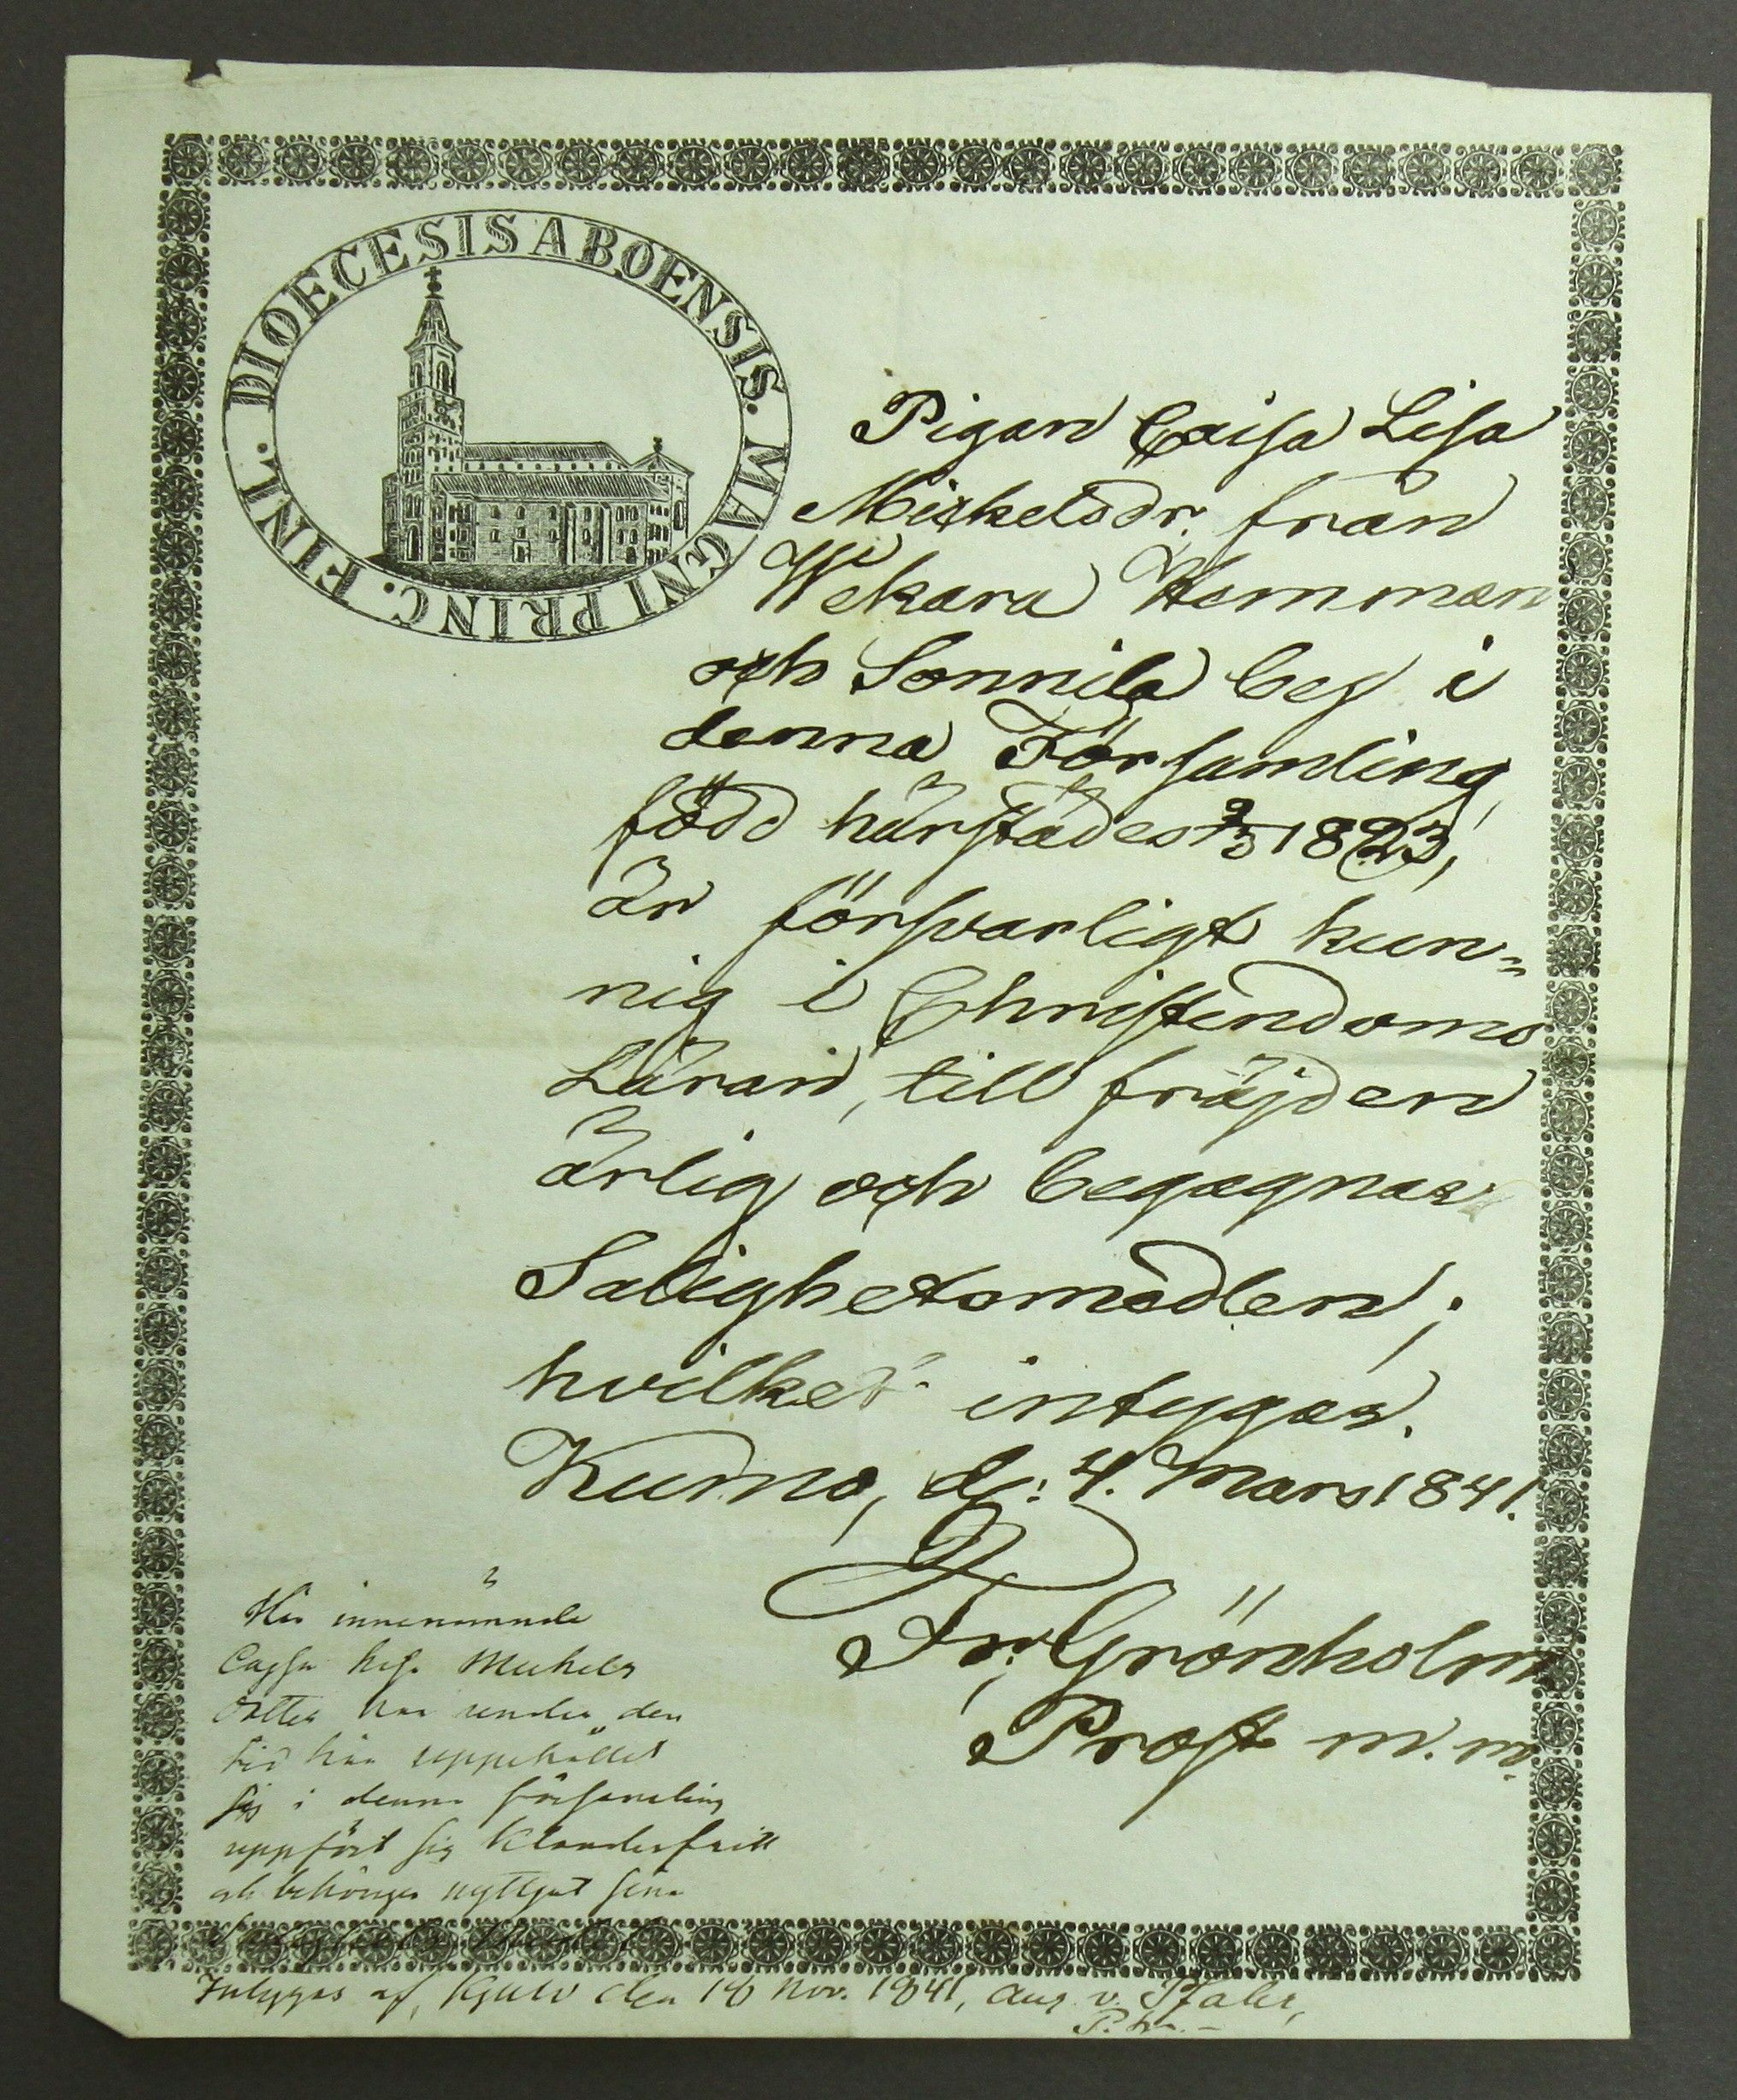 DIOECESIS ABOENSIS. MAGNI PRINC. FINL.
Pigan Caisa Lisa
Michelsdr. från
Wekara Hemman
och Sonnila bey i
denna Församling,
född härstädes 1823,
är försvarligt kun-
nig i Christendoms
Läran, till fräjden
ärlig och begagnar
Salighetsmedlen;
hvilket intygas.
Kumo, d: 4. Mars 1841.
Fr: Grönholm
Prost m.m.
Har innenämnde
Cajsa Lisa Michels
dotter har under den
tid hon uppehållet
sig i denna församling
uppfört sig klanderfritt
och behörigen nyttjat sina
Intygas af, Kjulo den 18 Nov. 1841, Aug. v.